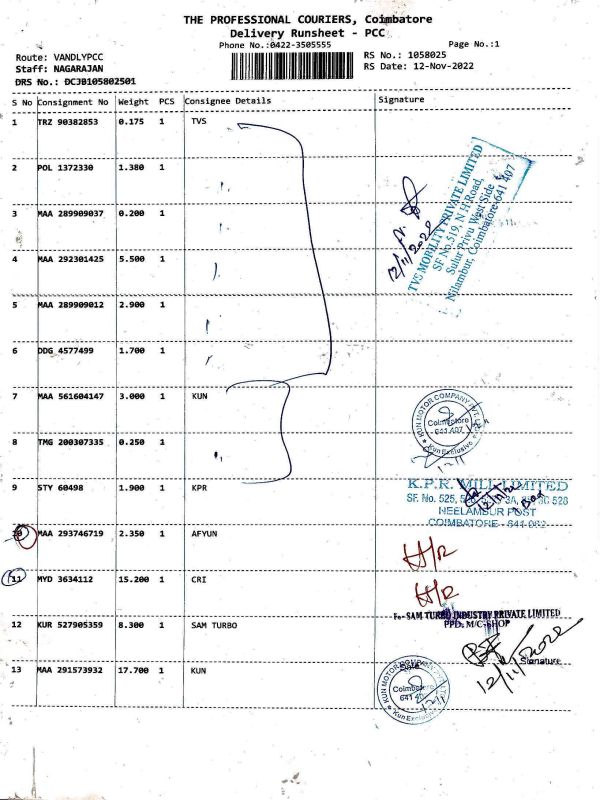 THE PROFESSIONAL COURIERS, Coimbatore
Delivery Runsheet - PCC
Phone No.:0422-3505555
Page No.:1
Route: VANDLYPCC
RS No.: 1058025
Staff: NAGARAJAN
RS Date: 12-Nov-2022
DRS No.: DCJB105802501
S No Consignment No Weight PCS Consignee Details Signature
1 TRZ 90382853 0.175 1 TVS
2 POL 1372330 1.380 1
3 MAA 289909037 0.200 1
4 MAA 292301425 5.500 1
5 MAA 289909012 2.900 1
6 DDG 4577499 1.700 1
TVS MOBILITY PRIVATE LIMITED
SF No.519, N H Road,
Sulur Privu West Side
Nilambur, Coimbatore-641 407
12/11/2022
7 MAA 561604147 3.000 1 KUN
KUN MOTOR COMPANY PVT. LTD.
Coimbatore
641 407
Kun Exclusive
12/11
8 TMG 200307335 0.250 1
9 STY 60498 1.900 1 KPR
K.P.R. MILL LIMITED
SF. No. 525,
NEELAMBUR POST
COIMBATORE - 641 062
10 MAA 293746719 2.350 1 AFYUN
H/R
11 MYD 3634112 15.200 1 CRI
H/R
12 KUR 527905359 8.300 1 SAM TURBO
For SAM TURBO INDUSTRY PRIVATE LIMITED
PPD. M/C-SHOP
Signature
12/11/2022
13 MAA 291573932 17.700 1 KUN
KUN MOTOR COMPANY
Coimbatore
641 407
Kun Exclusive
12/11